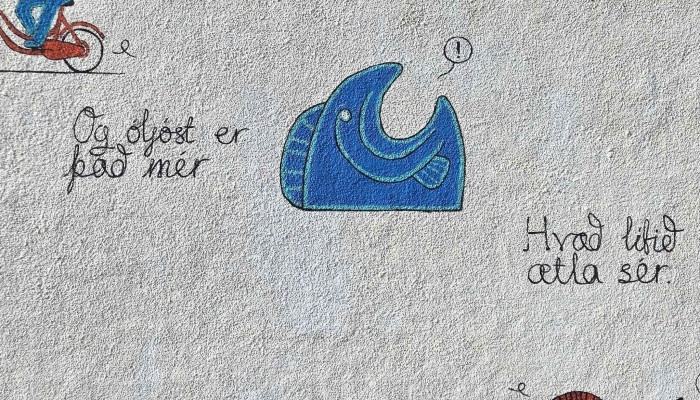 !
Og óljóst er
það mér
Hvað lífið
ætla sér.